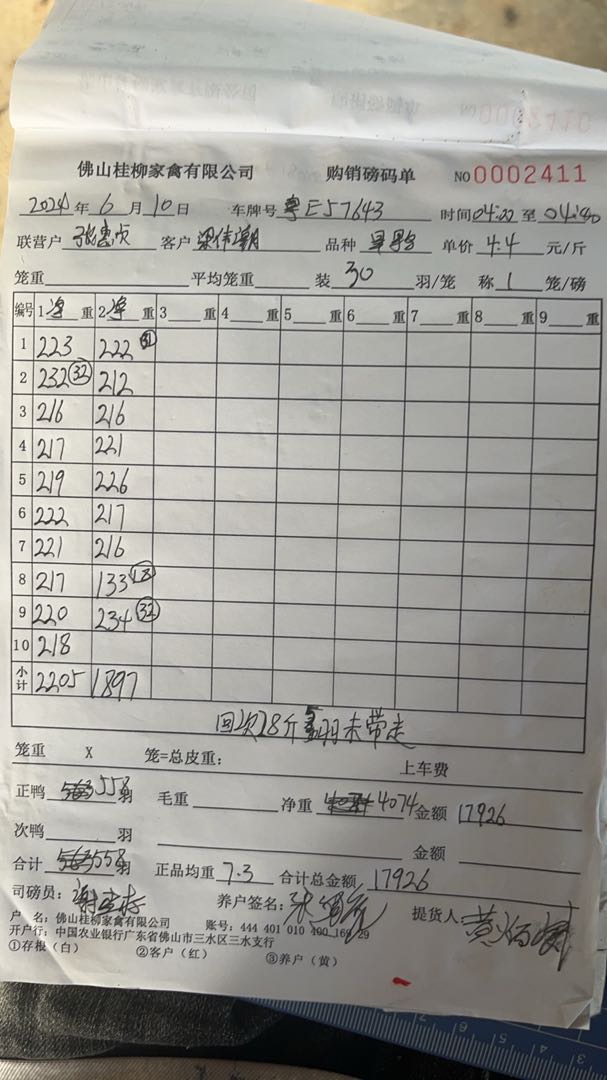 佛山桂柳家禽有限公司 购销磅码单 NO 0002411
2024年6月10日 车牌号 粤E57643 时间04:22至04:40
联营户 客户 梁伟潮 品种 单价 4.4 元/斤
笼重 平均笼重 装 30 羽/笼 称 1 笼/磅
编号 1净重 2净重 3 重 4 重 5 重 6 重 7 重 8 重 9 重
1 223 222 (31)
2 232 (32) 212
3 216 216
4 217 221
5 219 226
6 222 217
7 221 216
8 217 133 (18)
9 220 234 (32)
10 218
小计 2205 1897
回次28斤5羽未带走
笼重 X 笼=总皮重: 上车费
正鸭 563 558 羽 毛重 净重 4074 金额 17926
次鸭 羽 金额
合计 563 558 羽 正品均重 7.3 合计总金额 17926
司磅员: 养户签名: 提货人
户 名: 佛山桂柳家禽有限公司 账号: 444 401 010 400 169 29
开户行: 中国农业银行广东省佛山市三水区三水支行
①存根(白) ②客户(红) ③养户(黄)